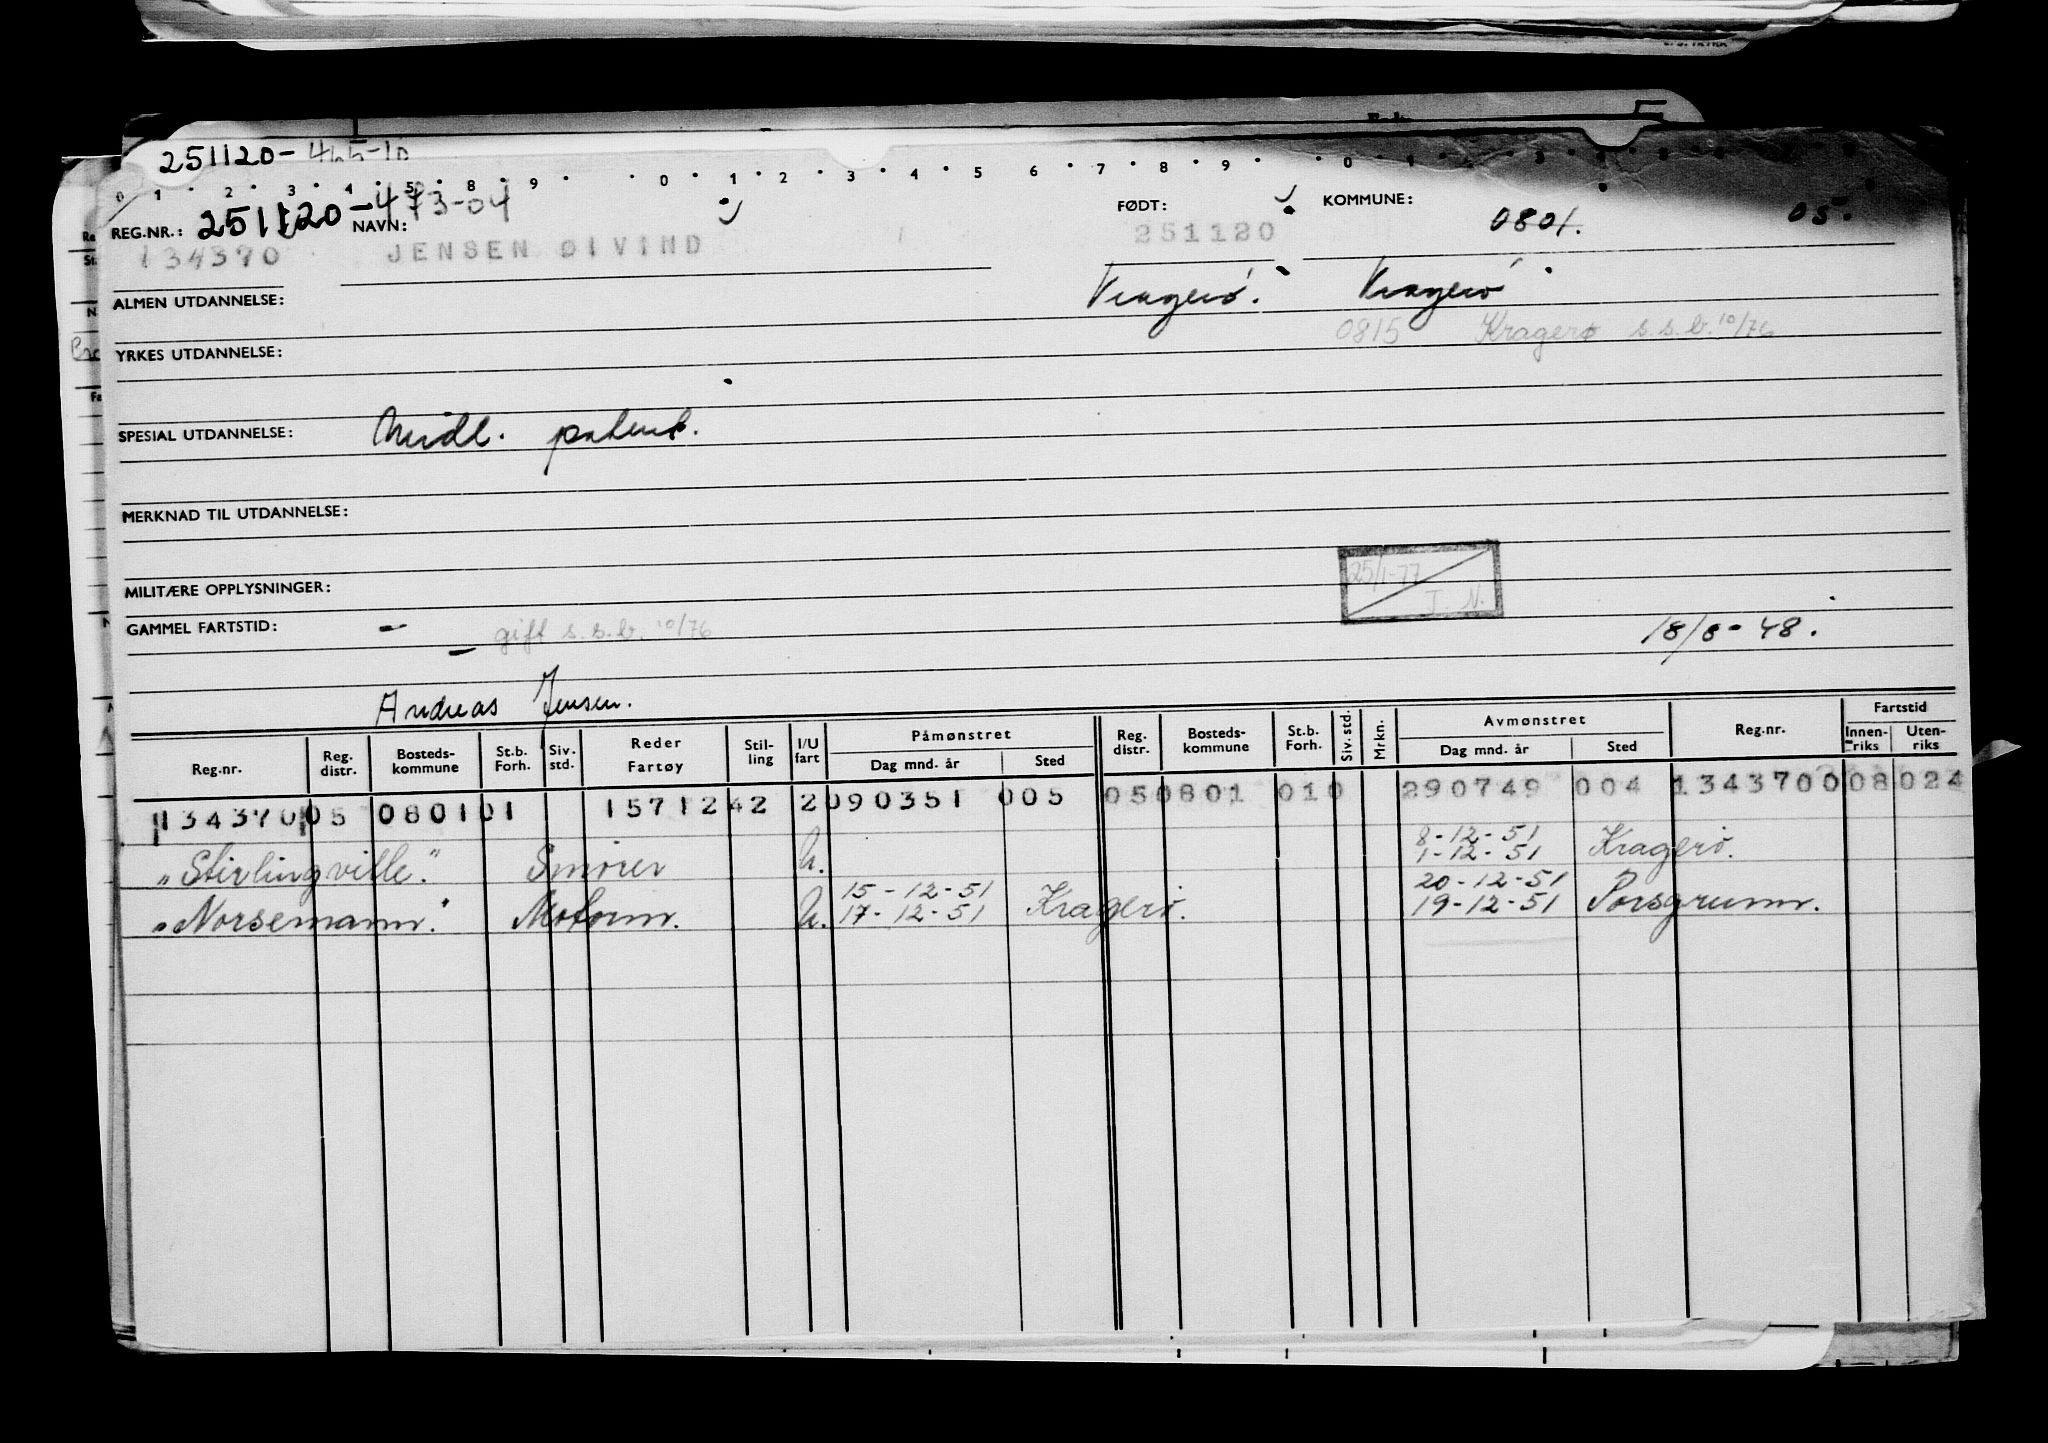 251120-465-10
0 1 2 3 4 5 8 9 0 1 2 3 4 5 6 7 8 9 0 1
REG.NR.: 251120-473-04 NAVN: FØDT: KOMMUNE: 0801. 05.
134370 JENSEN ØIVIND 251120
ALMEN UTDANNELSE: Kragerø. Kragerø
0815 Kragerø s.s.b. 10/76
YRKES UTDANNELSE:
SPESIAL UTDANNELSE: Midl. patent.
MERKNAD TIL UTDANNELSE:
25/1-77
J N.
MILITÆRE OPPLYSNINGER:
GAMMEL FARTSTID: - 18/8-48.
- gift s.s.b. 10/76
Andreas Jensen.
Reg.nr. Reg. distr. Bosteds-kommune St.b. Forh. Siv. std. Reder Fartøy Stil-ling I/U fart Påmønstret Dag mnd. år Sted Reg. distr. Bosteds-kommune St.b. Forh. Siv. std. Mrkn. Avmønstret Dag mnd. år Sted Reg.nr. Fartstid Innen-riks Uten-riks
134370 05 0801 01 15712 42 2 090351 005 05 0801 010 290749 004 1343700 08 024
8-12-51
"Stirlingville." Smører U. 1-12-51 Kragerø.
15-12-51 20-12-51
"Norsemann." Motorm. U. 17-12-51 Kragerø. 19-12-51 Porsgrunn.